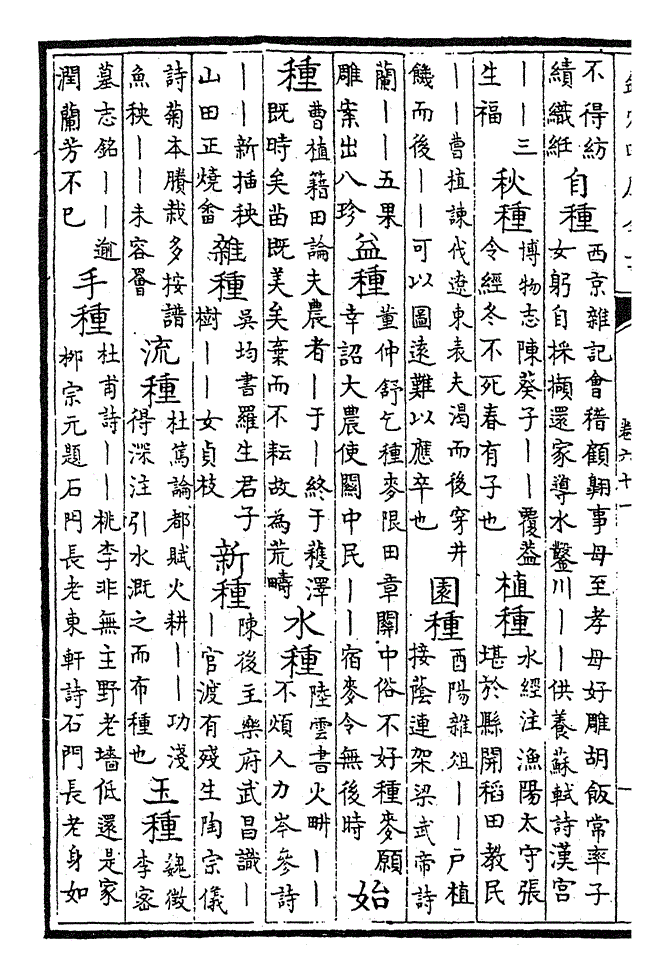 卷六十一
不得紡
績織紝
自種
西京雜記會稽顧翺事母至孝母好雕胡飯常率子
女躬自採擷還家導水鑿川丨丨供養蘇軾詩漢宮
丨丨三
生福
秋種
博物志陳葵子丨丨覆葢
令經冬不死春有子也
植種
水經注漁陽太守張
堪於縣開稻田教民
丨丨曹植諫伐遼東表夫渴而後穿井
饑而後丨丨可以圖遠難以應卒也
園種
酉陽雜俎丨丨户植
接蔭連架梁武帝詩
蘭丨丨五果
雕案出八珍
益種
董仲舒乞種麥限田章關中俗不好種麥願
幸詔大農使關中民丨丨宿麥令無後時
始
種
曹植籍田論夫農者丨于丨終于穫澤
既時矣苗既美矣棄而不耘故為荒疇
水種
陸雲書火畊丨丨
不煩人力岑參詩
丨丨新插秧
山田正燒畬
雜種
吳均書羅生君子
樹丨丨女貞枝
新種
陳後主樂府武昌識丨
丨官渡有殘生陶宗儀
詩菊本賸栽多按譜
魚秧丨丨未容罾
流種
杜篤論都賦火耕丨丨功淺
得深注引水溉之而布種也
玉種
魏徵
李密
墓志銘丨丨逾
潤蘭芳不已
手種
杜甫詩丨丨桃李非無主野老墻低還是家
柳宗元題石門長老東軒詩石門長老身如